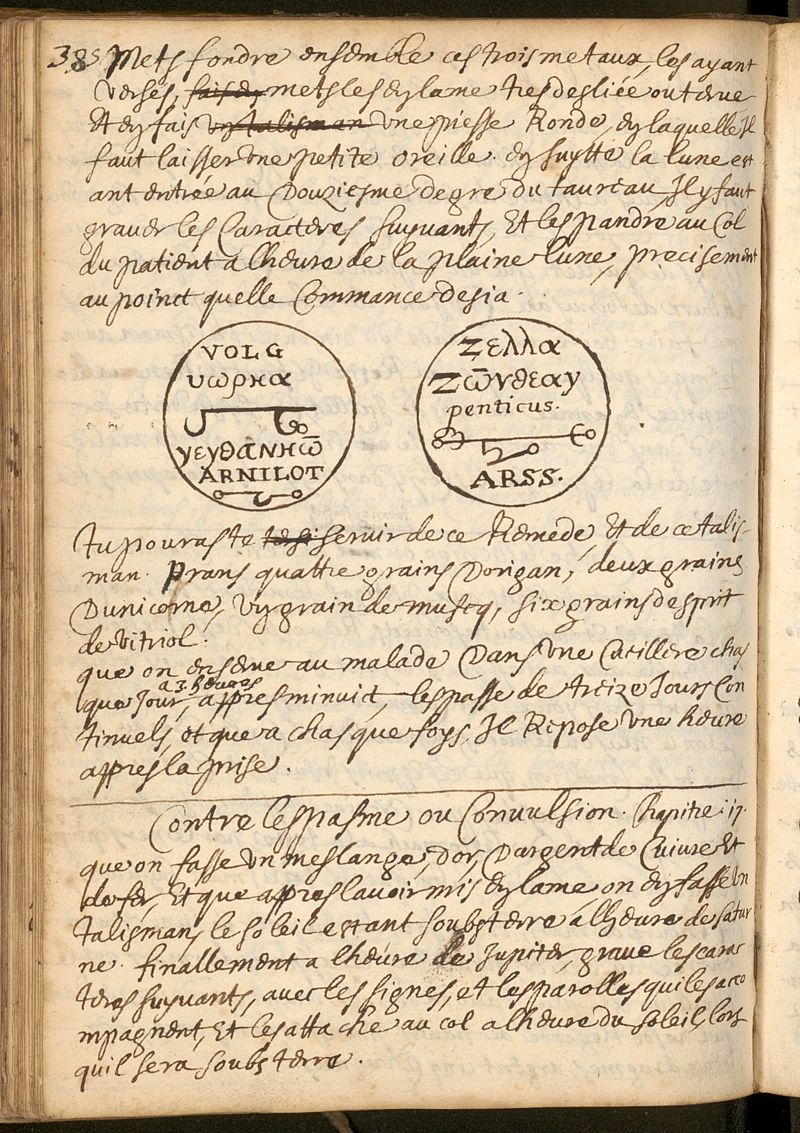 385 Mets fondre ensemble ces trois metaux, les ayant
verses, fais ey, mets les ey lame tres desliée ou tenue
Et ey fais vn talisman vne piesse Ronde, ey laquelle Il
faut laisser vne petite oreille. ey suytte la lune est
ant entrée au Douziesme degre du taureau, Il y faut
grauer les Caracteres suyuants, Et les pandre au Col
du patient a lheure de la plaine lune, precisement
au poinct quelle Commance desia.
VOLG
υωρκα
γευθᾱνηω̄
ARNILOT
Ζελλα
Ζω̄υθεαυ
penticus.
ARSS.
Tu pouras te seruir de ce Remede, Et de ce talis-
man. Prans quattre grains Dorigan, deux grains
Dunicorne, vy grain de muscq, six grains desprit
de vitriol.
que on en serue au malade Dans vne Cuillere chas
a 3. heures
que Jour, appres minuict, lespasse de treize Jours Con
tinuels et que a chasque foys, Il Repose vne heure
appres la prise.
Contre lespasme ou Conuulsion. Chapitre: 17.
que on fasse vn meslange, dor, Dargent de Cuiure Et
de fer, Et que appres lauoir mis ey lame, on ey fasse vn
talismans le soleil estant soubs terre a lheure de satur
ne. finallement a lheure de Jupiter, graue les carac
teres suyuants, auec les signes, et les parolles qui les acco
mpagnent, Et les attache au col a lheure du soleil, lors
quil sera soubs terre.